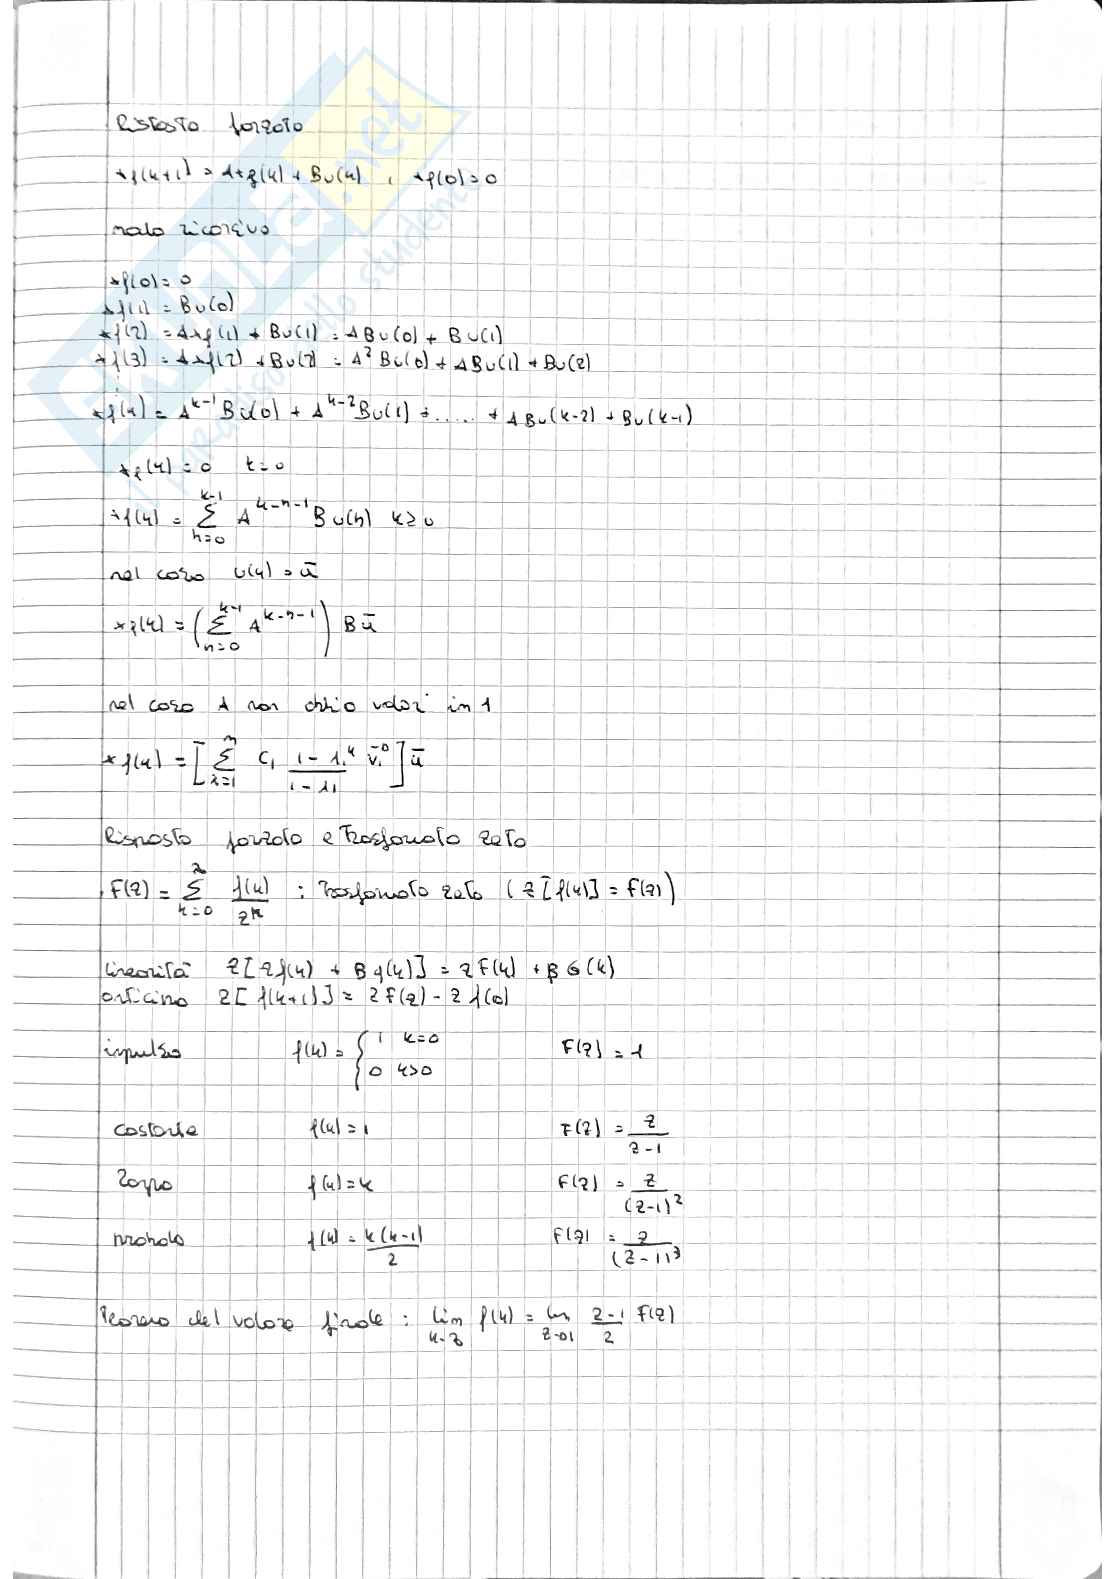 Risposta forzata
xf(k+1) = Axf(k) + Bu(k) , xf(0)=0
modo ricorsivo
xf(0)= 0
xf(1) = Bu(0)
xf(2) = Axf(1) + Bu(1) = ABu(0) + Bu(1)
xf(3) = Axf(2) + Bu(2) = A² Bu(0) + ABu(1) + Bu(2)
⋮
xf(k) = A^{k-1} Bu(0) + A^{k-2} Bu(1) + ..... + ABu(k-2) + Bu(k-1)
xf(k) = 0 k=0
xf(k) = Σ_{h=0}^{k-1} A^{k-h-1} Bu(h) k≥0
nel caso u(k) = ū
xf(k) = (Σ_{h=0}^{k-1} A^{k-h-1}) Bū
nel caso A non abbia valori in 1
xf(k) = [Σ_{i=1}^{n} Ci (1-λi^k)/(1-λi) vi^0] ū
Risposta forzata e Trasformata zeta
F(z) = Σ_{k=0}^{∞} f(k)/z^k : Trasformata zeta (Z[f(k)] = F(z))
linearità Z[αf(k) + βg(k)] = αF(k) + βG(k)
anticipo Z[f(k+1)] = zF(z) - zf(0)
impulso f(k) = { 1 k=0 F(z) = 1
0 k>0
costante f(k)=1 F(z) = z/(z-1)
rampa f(k)=k F(z) = z/(z-1)²
parabola f(k) = k(k-1)/2 F(z) = z/(z-1)³
Teorema del valore finale : lim_{k→∞} f(k) = lim_{z→1} (z-1)/z F(z)